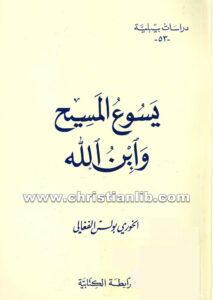 دراسات بيبلية
-٥٣-
يسوع المسيح
وَابن الله
www.christianlib.com
الخوري بولس الفغالي
رابطة الكتابية